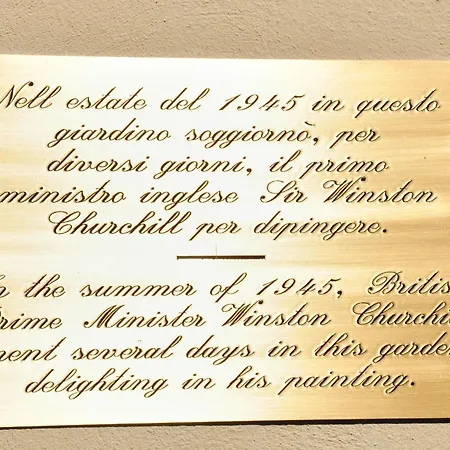 Nell estate del 1945 in questo
giardino soggiornò, per
diversi giorni, il primo
ministro inglese Sir Winston
Churchill per dipingere.
In the summer of 1945, Britis
Prime Minister Winston Churchil
pent several days in this garde
delighting in his painting.